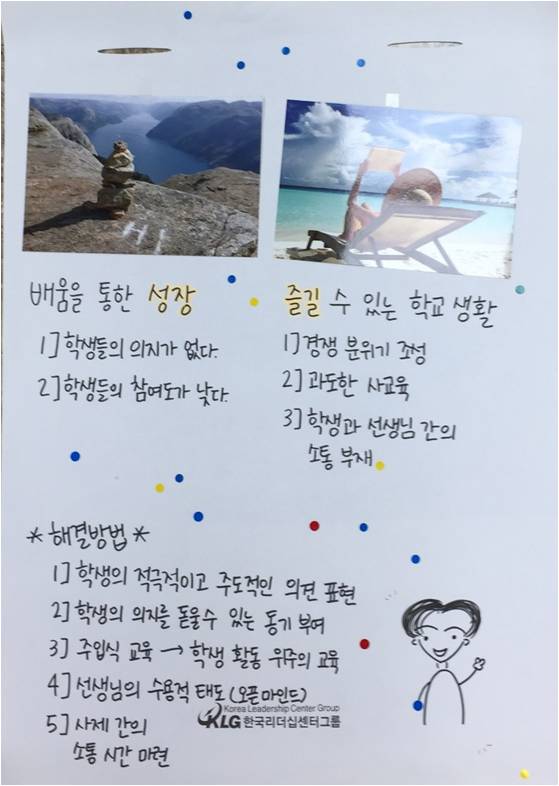 HI
배움을 통한 성장
1] 학생들의 의지가 없다.
2] 학생들의 참여도가 낮다.
즐길 수 있는 학교 생활
1] 경쟁 분위기 조성
2] 과도한 사교육
3] 학생과 선생님 간의
소통 부재
* 해결방법 *
1] 학생의 적극적이고 주도적인 의견 표현
2] 학생의 의지를 돋울 수 있는 동기 부여
3] 주입식 교육 → 학생 활동 위주의 교육
4] 선생님의 수용적 태도 (오픈 마인드)
5] 사제 간의
소통 시간 마련
Korea Leadership Center Group
KLG 한국리더십센터그룹